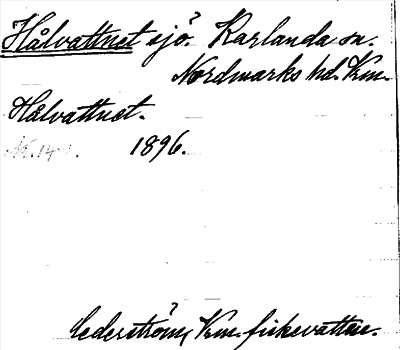 Hålvattnet sjö? Karlanda sn.
Nordmarks hd. Vrm.
Hålvattnet.
1896.
Cederström, Vrm. fiskevatten.